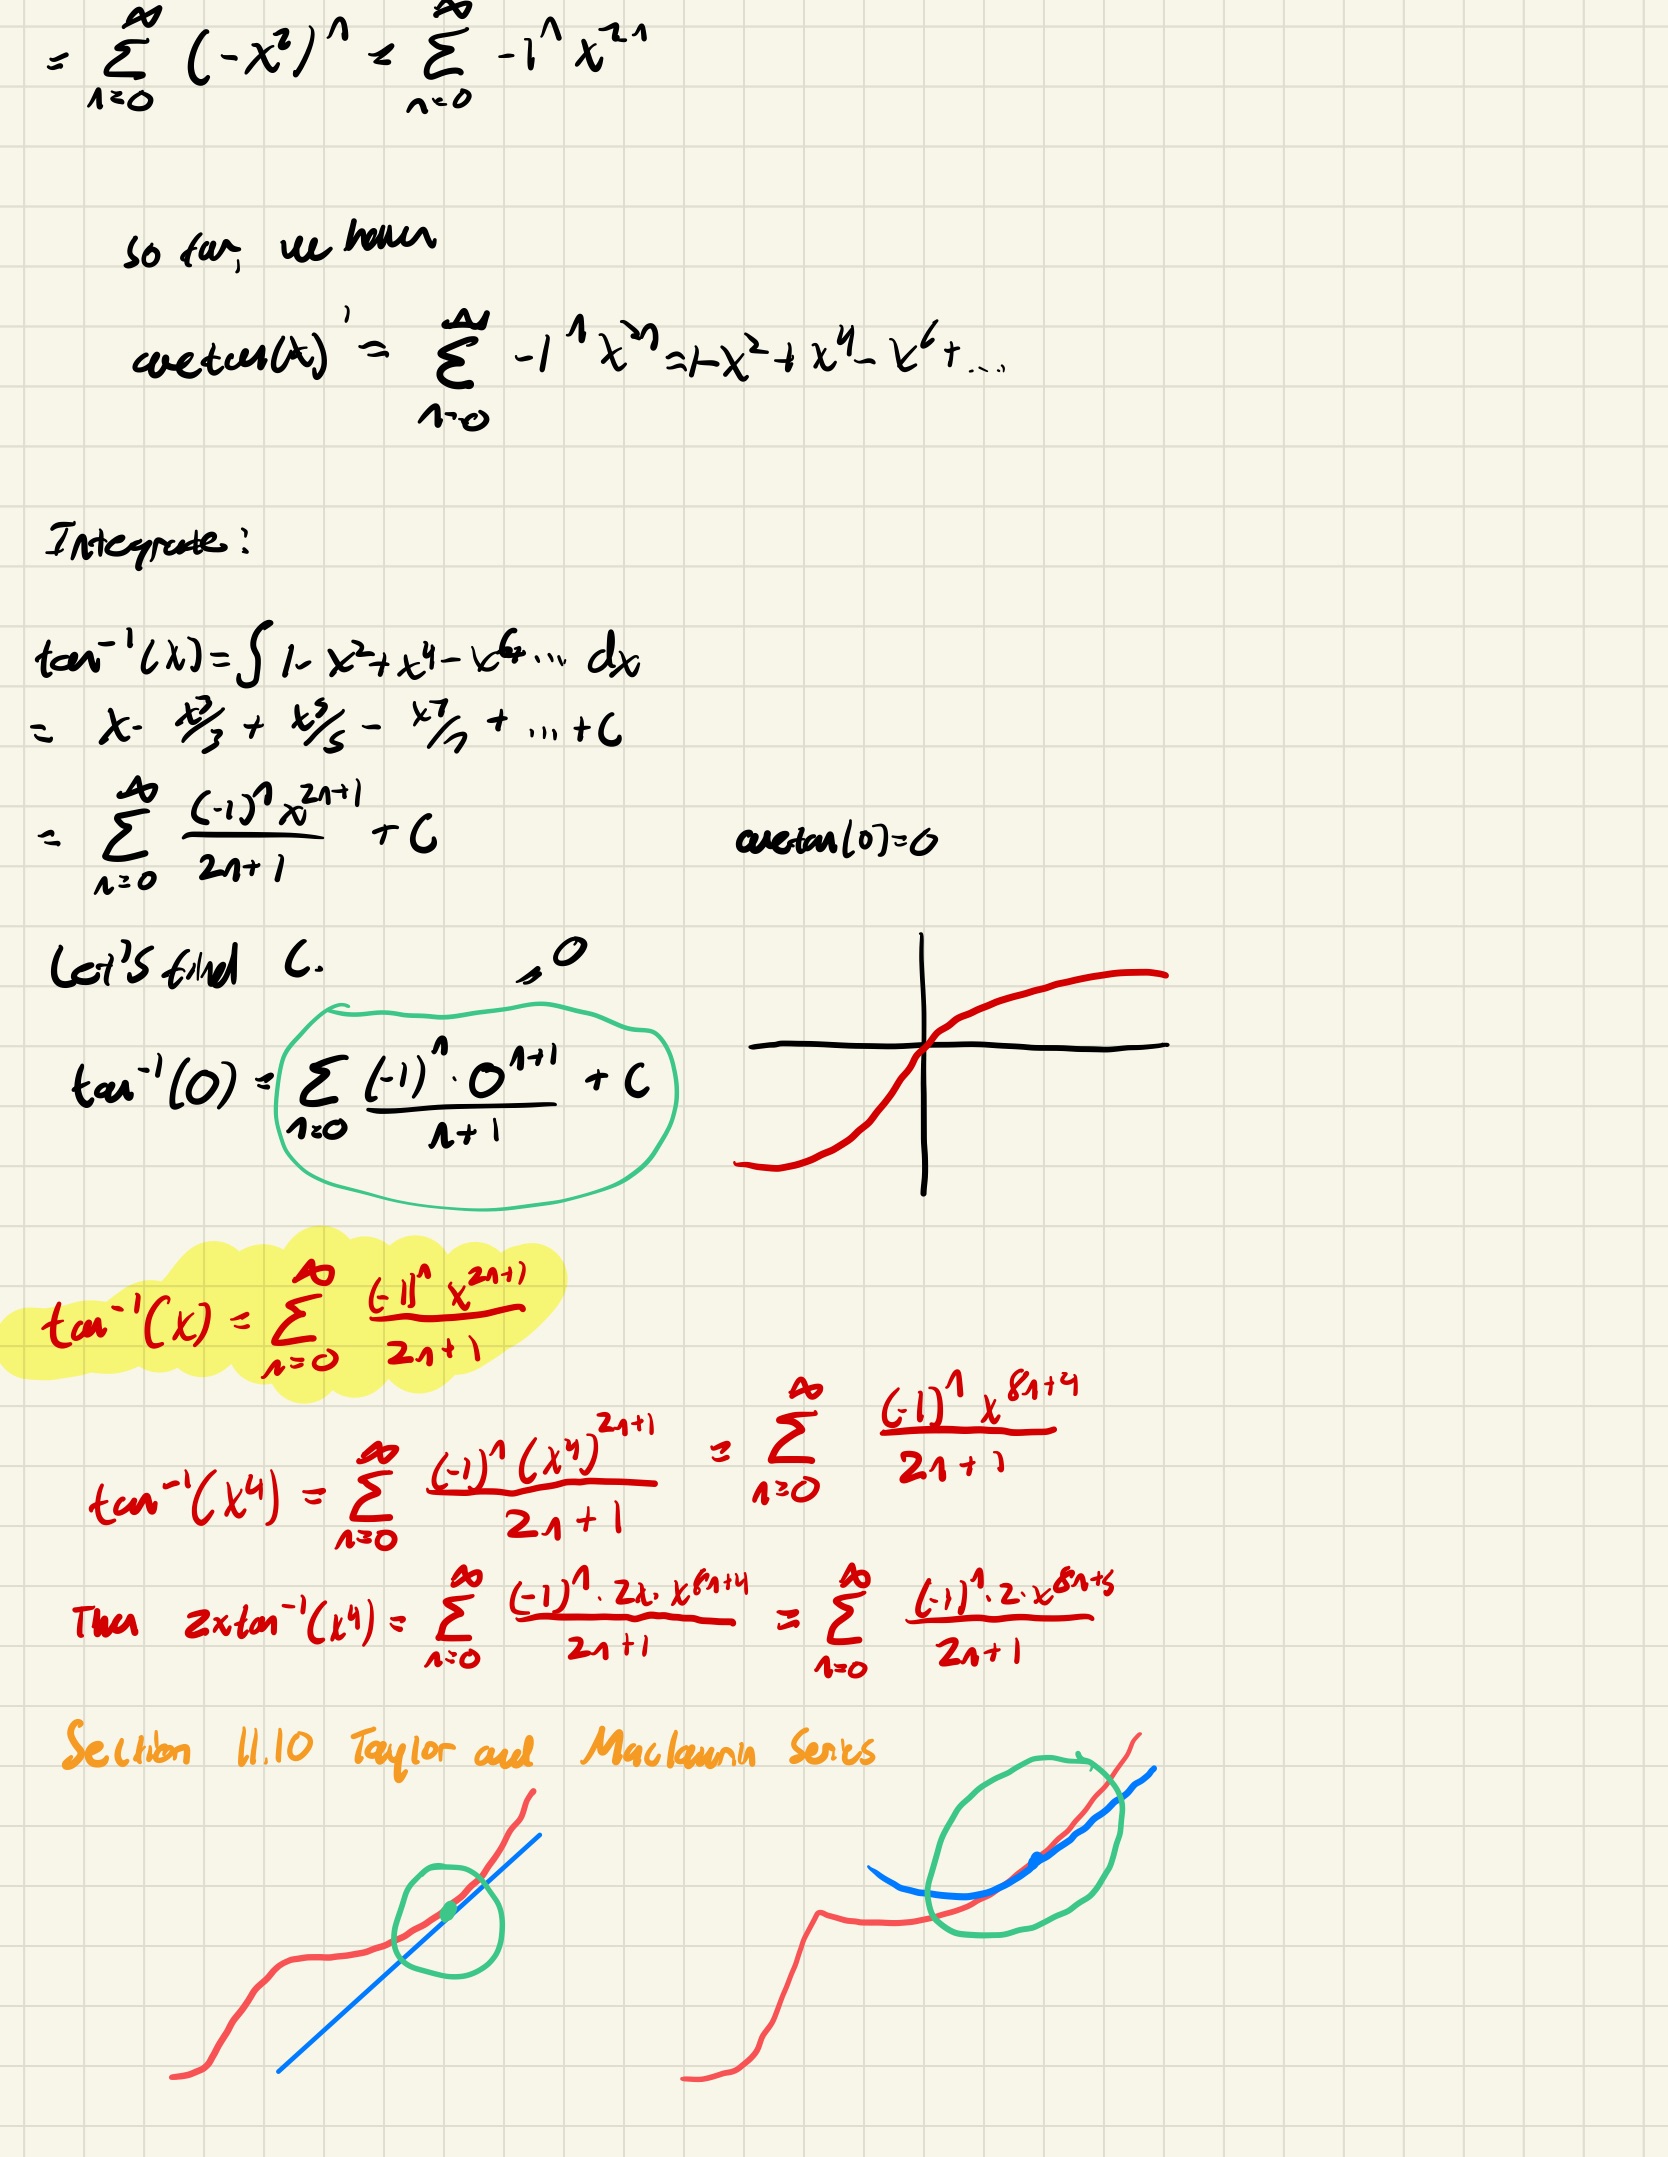 = ∞ Σ n=0 (-x²)ⁿ = ∞ Σ n=0 -1ⁿ x²ⁿ
so far, we have
arctan(x)' = ∞ Σ n=0 -1ⁿ x²ⁿ = 1-x²+x⁴-x⁶+...
Integrate:
tan⁻¹(x) = ∫ 1-x²+x⁴-x⁶+... dx
= x - x³/3 + x⁵/5 - x⁷/7 + ... + C
= ∞ Σ n=0 (-1)ⁿ x²ⁿ⁺¹ / 2n+1 + C
arctan(0)=0
Let's find C.
0
tan⁻¹(0) = Σ n=0 (-1)ⁿ · 0ⁿ⁺¹ / n+1 + C
tan⁻¹(x) = ∞ Σ n=0 (-1)ⁿ x²ⁿ⁺¹ / 2n+1
tan⁻¹(x⁴) = ∞ Σ n=0 (-1)ⁿ (x⁴)²ⁿ⁺¹ / 2n+1 = ∞ Σ n=0 (-1)ⁿ x⁸ⁿ⁺⁴ / 2n+1
Then 2x tan⁻¹(x⁴) = ∞ Σ n=0 (-1)ⁿ · 2x · x⁸ⁿ⁺⁴ / 2n+1 = ∞ Σ n=0 (-1)ⁿ · 2 · x⁸ⁿ⁺⁵ / 2n+1
Section 11.10 Taylor and Maclaurin Series